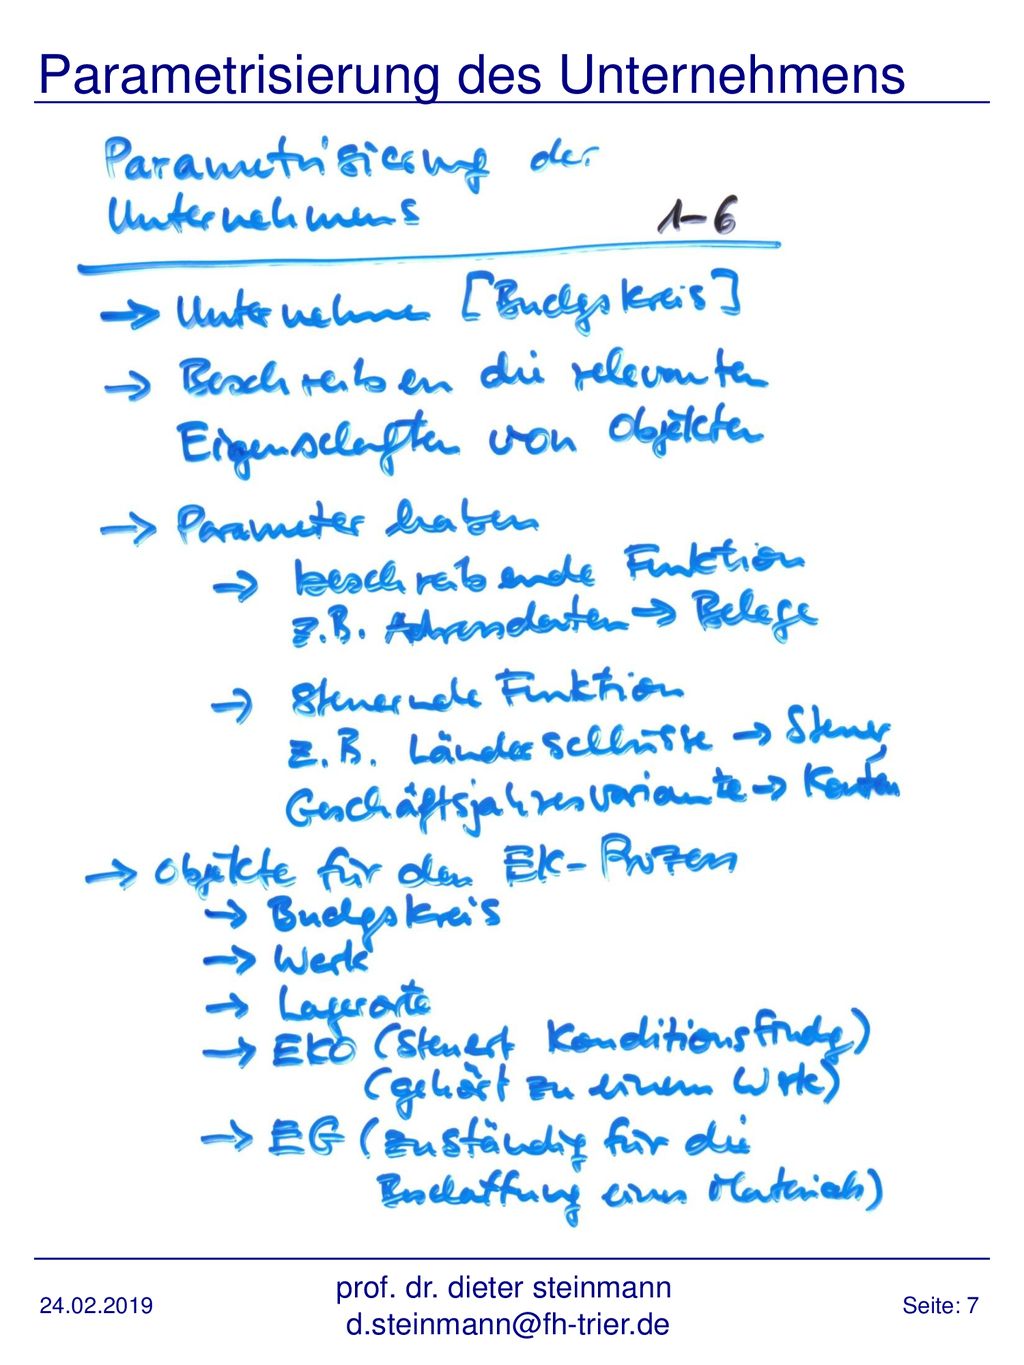 Parametrisierung des Unternehmens
Parametrisierung der
Unternehmens 1-6
→ Unternehmen [Buchgskreis]
→ Beschreiben die relevanten
Eigenschaften von Objekten
→ Parameter haben
→ beschreibende Funktion
z.B. Adressdaten → Belege
→ Steuernde Funktion
z.B. Länderschlüssel → Steuer
Geschäftsjahresvariante → Konten
→ Objekte für den EK-Prozess
→ Buchgskreis
→ Werk
→ Lagerorte
→ EKO (steuert Konditionsfindg)
(gehört zu einem Werk)
→ EG (zuständig für die
Beschaffung eines Materials)
24.02.2019
prof. dr. dieter steinmann
d.steinmann@fh-trier.de
Seite: 7